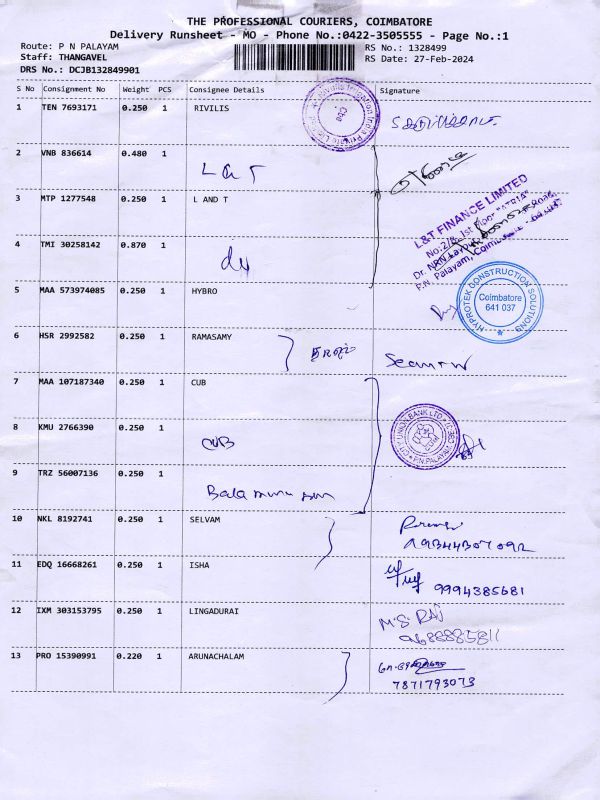 THE PROFESSIONAL COURIERS, COIMBATORE
Delivery Runsheet - MO - Phone No.:0422-3505555 - Page No.:1
Route: P N PALAYAM
RS No.: 1328499
Staff: THANGAVEL
RS Date: 27-Feb-2024
DRS No.: DCJB132849901
S No Consignment No Weight PCS Consignee Details Signature
1 TEN 7693171 0.250 1 RIVILIS
2 VNB 836614 0.480 1
L & T
3 MTP 1277548 0.250 1 L AND T
L&T FINANCE LIMITED
4 TMI 30258142 0.870 1
5 MAA 573974085 0.250 1 HYBRO
HYPROTEK CONSTRUCTION SOLUTIONS
Coimbatore
641 037
6 HSR 2992582 0.250 1 RAMASAMY
7 MAA 107187340 0.250 1 CUB
CITY UNION BANK LTD
P.N.PALAYAM
8 KMU 2766390 0.250 1
CUB
9 TRZ 56007136 0.250 1
10 NKL 8192741 0.250 1 SELVAM
11 EDQ 16668261 0.250 1 ISHA
9994385681
12 IXM 303153795 0.250 1 LINGADURAI
M.S. RAJ
9688885811
13 PRO 15390991 0.220 1 ARUNACHALAM
7871793073